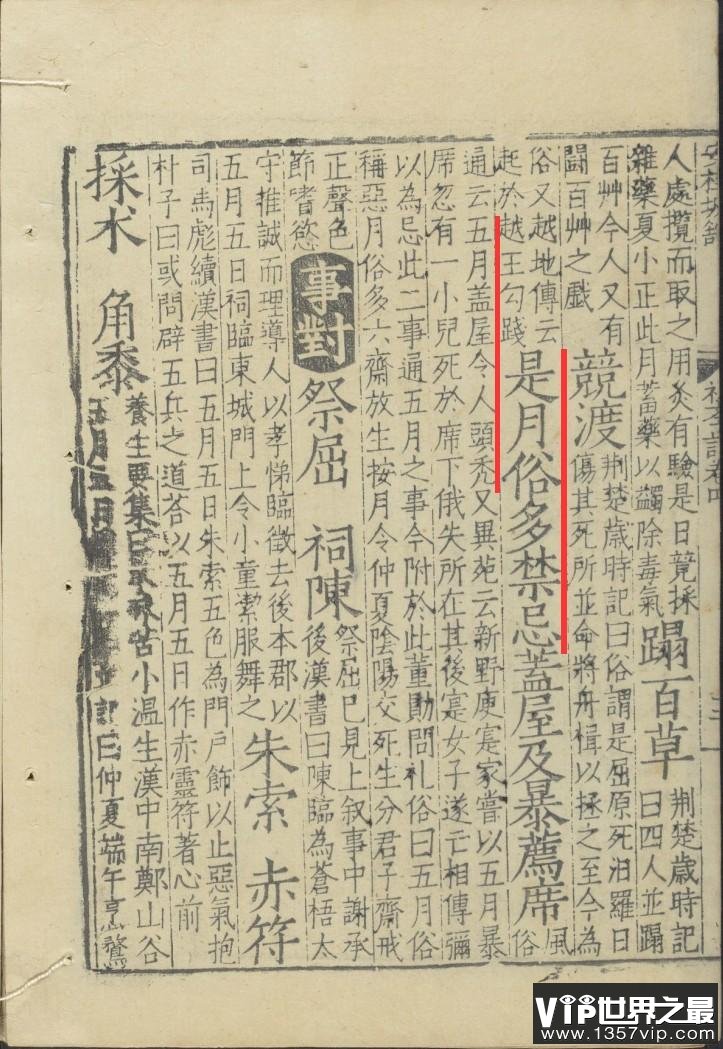 安桂坡館
初學記卷四
人處攬而取之用灸有驗是日競採
雜藥夏小正此月蓄藥以蠲除毒氣
蹋百草
荆楚歲時記
曰四人並蹋
百艸今人又有
鬪百艸之戲
競渡
荆楚歲時記曰俗謂是屈原死汨羅日
傷其死所並命將舟楫以拯之至今為
俗又越地傳云
起於越王勾踐
是月俗多禁忌蓋屋及暴薦席
風
俗
通云五月蓋屋令人頭禿又異苑云新野庾寔家嘗以五月暴
席忽有一小兒死於席下俄失所在其後寔女子遂亡相傳彌
以為忌此二事通五月之事今附於此董勛問礼俗曰五月俗
稱惡月俗多六齋放生按月令仲夏陰陽交死生分君子齋戒
正聲色
節嗜慾
事對
祭屈 祠陳
祭屈已見上叙事中謝承
後漢書曰陳臨為蒼梧太
守推誠而理導人以孝悌臨徵去後本郡以
五月五日祠臨東城門上令小童潔服舞之
朱索 赤符
司馬彪續漢書曰五月五日朱索五色為門戶飾以止惡氣抱
朴子曰或問辟五兵之道荅以五月五日作赤靈符著心前
採朮 角黍
養生要集曰朮味苦小溫生漢中南鄭山谷
五月五日 記曰仲夏端午烹鶩
VIP世界之最
www.1357vip.com